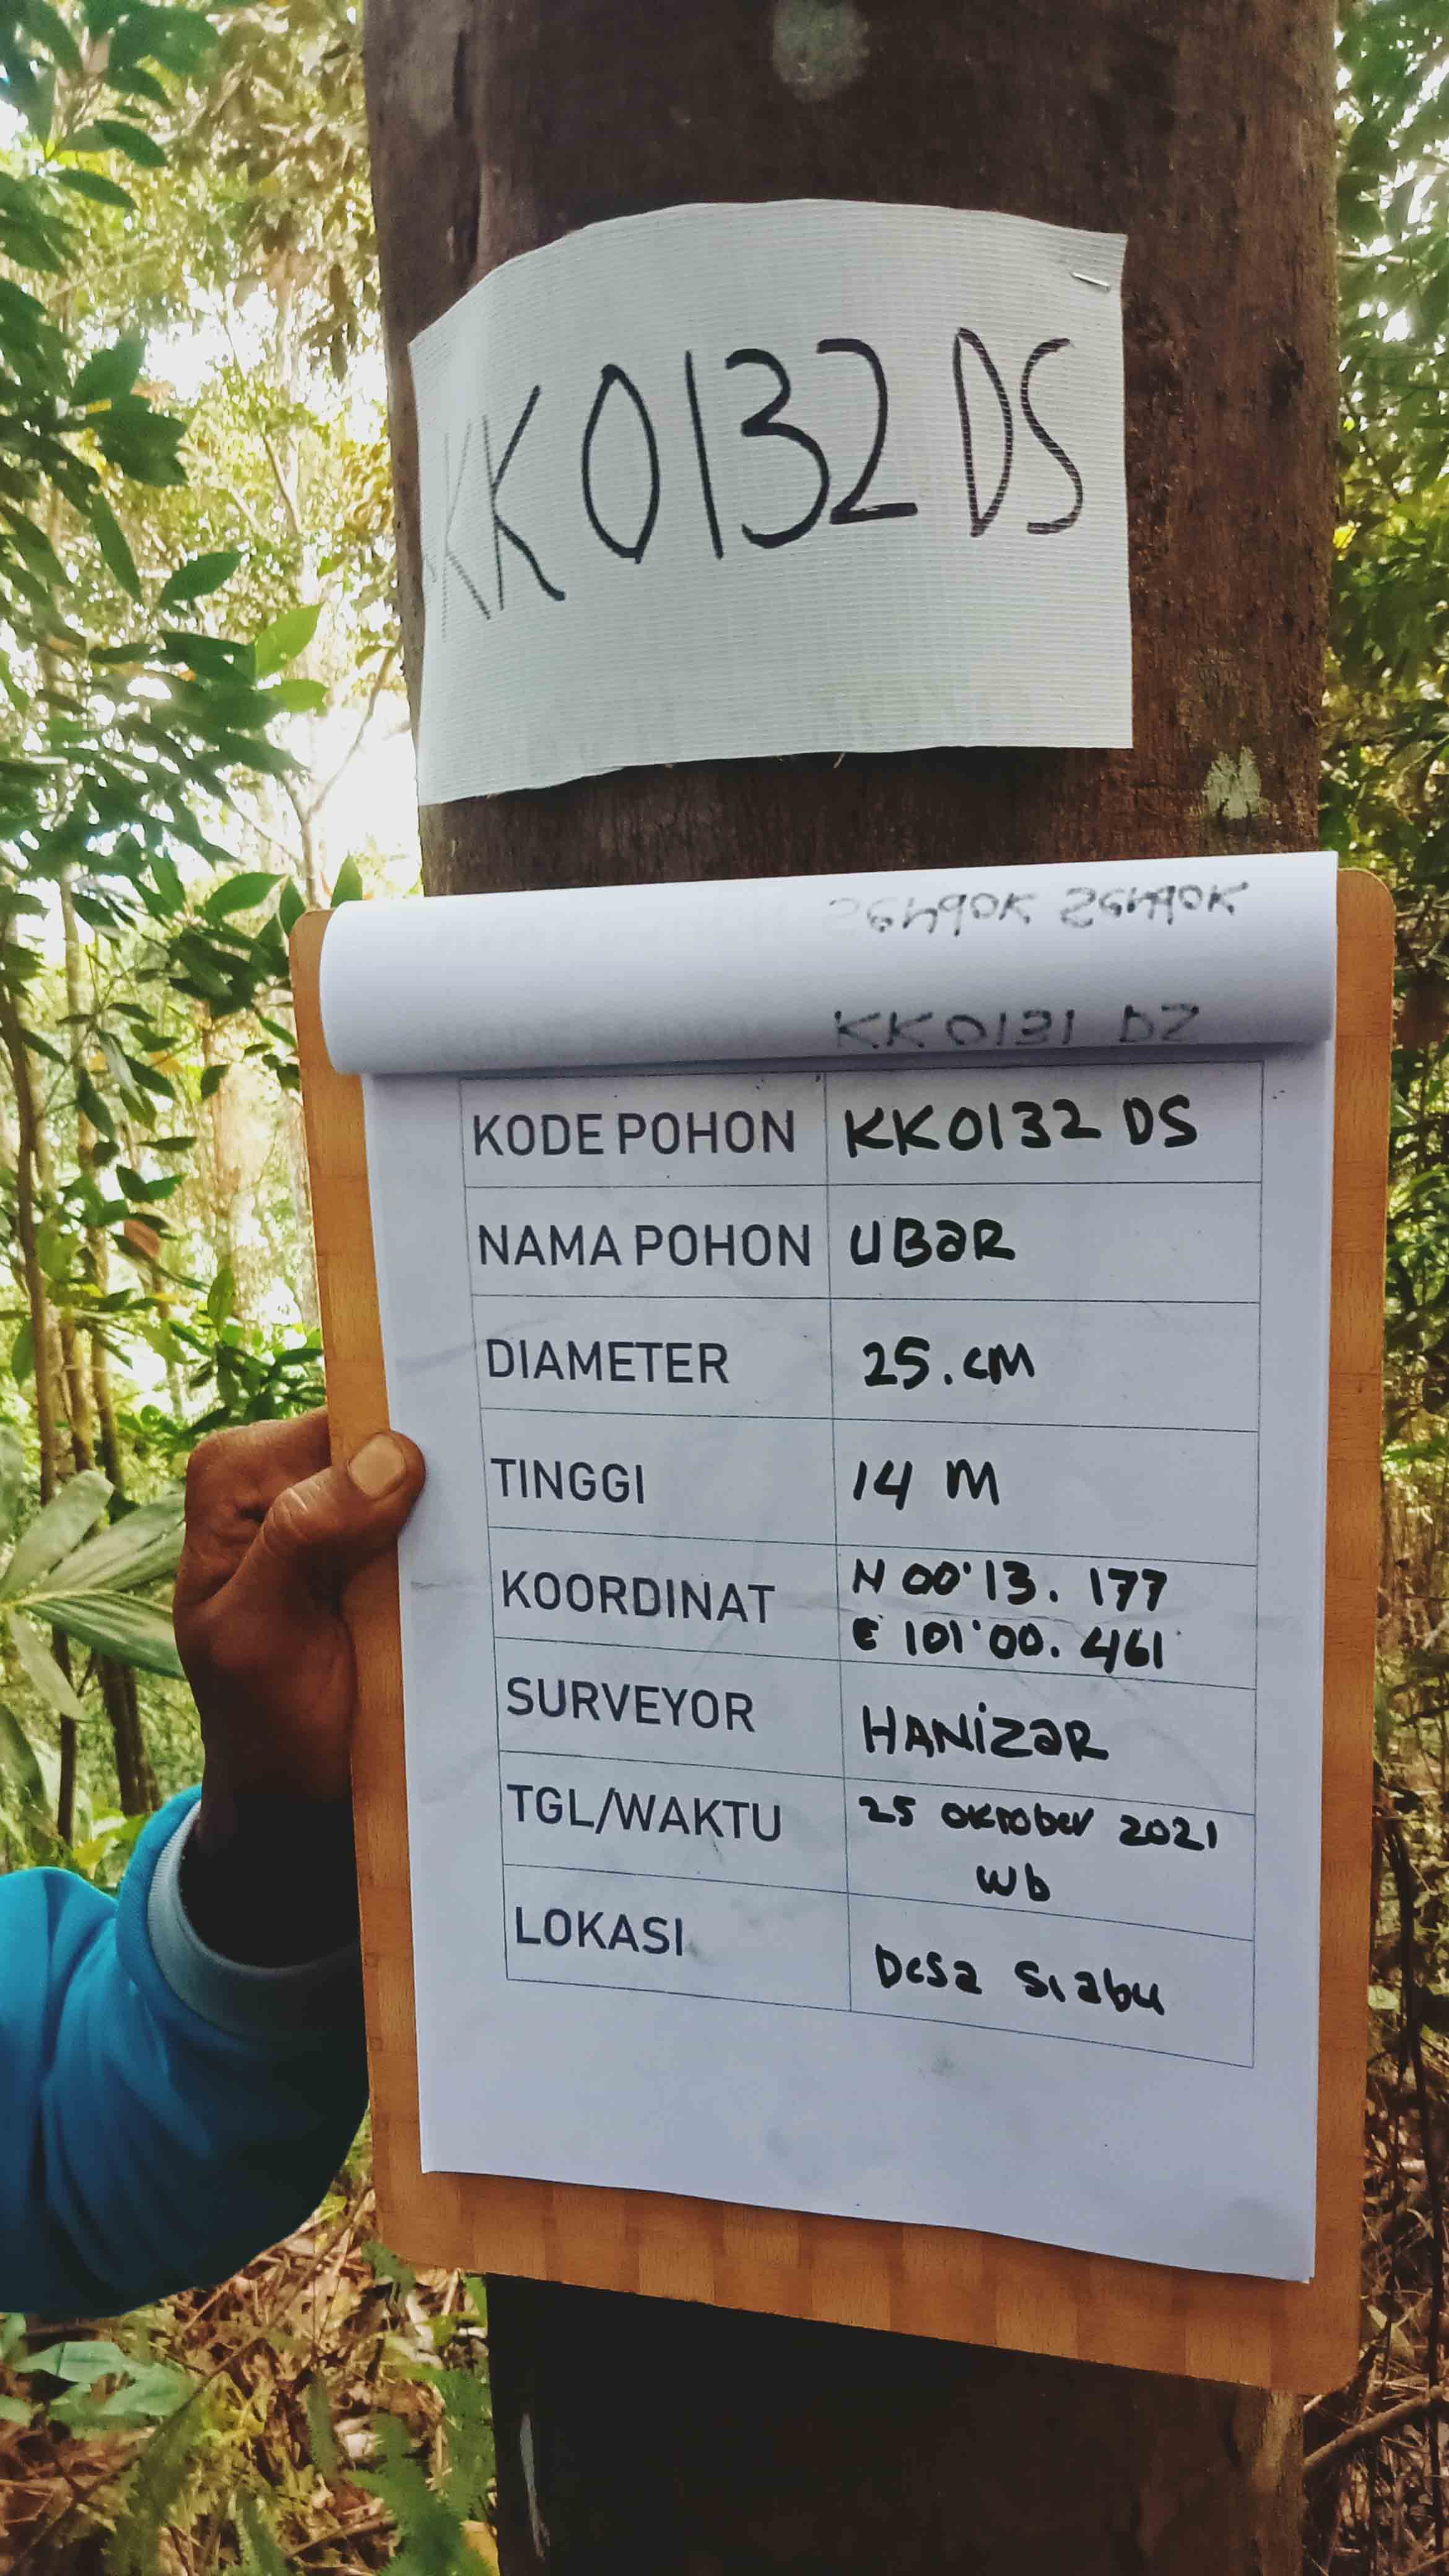 KK0132 DS
KODE POHON KK0132 DS
NAMA POHON UBaR
DIAMETER 25.cM
TINGGI 14 M
KOORDINAT N 00°13. 177
E 101°00. 461
SURVEYOR HANiZaR
TGL/WAKTU 25 oktober 2021
wb
LOKASI Desa Siabu